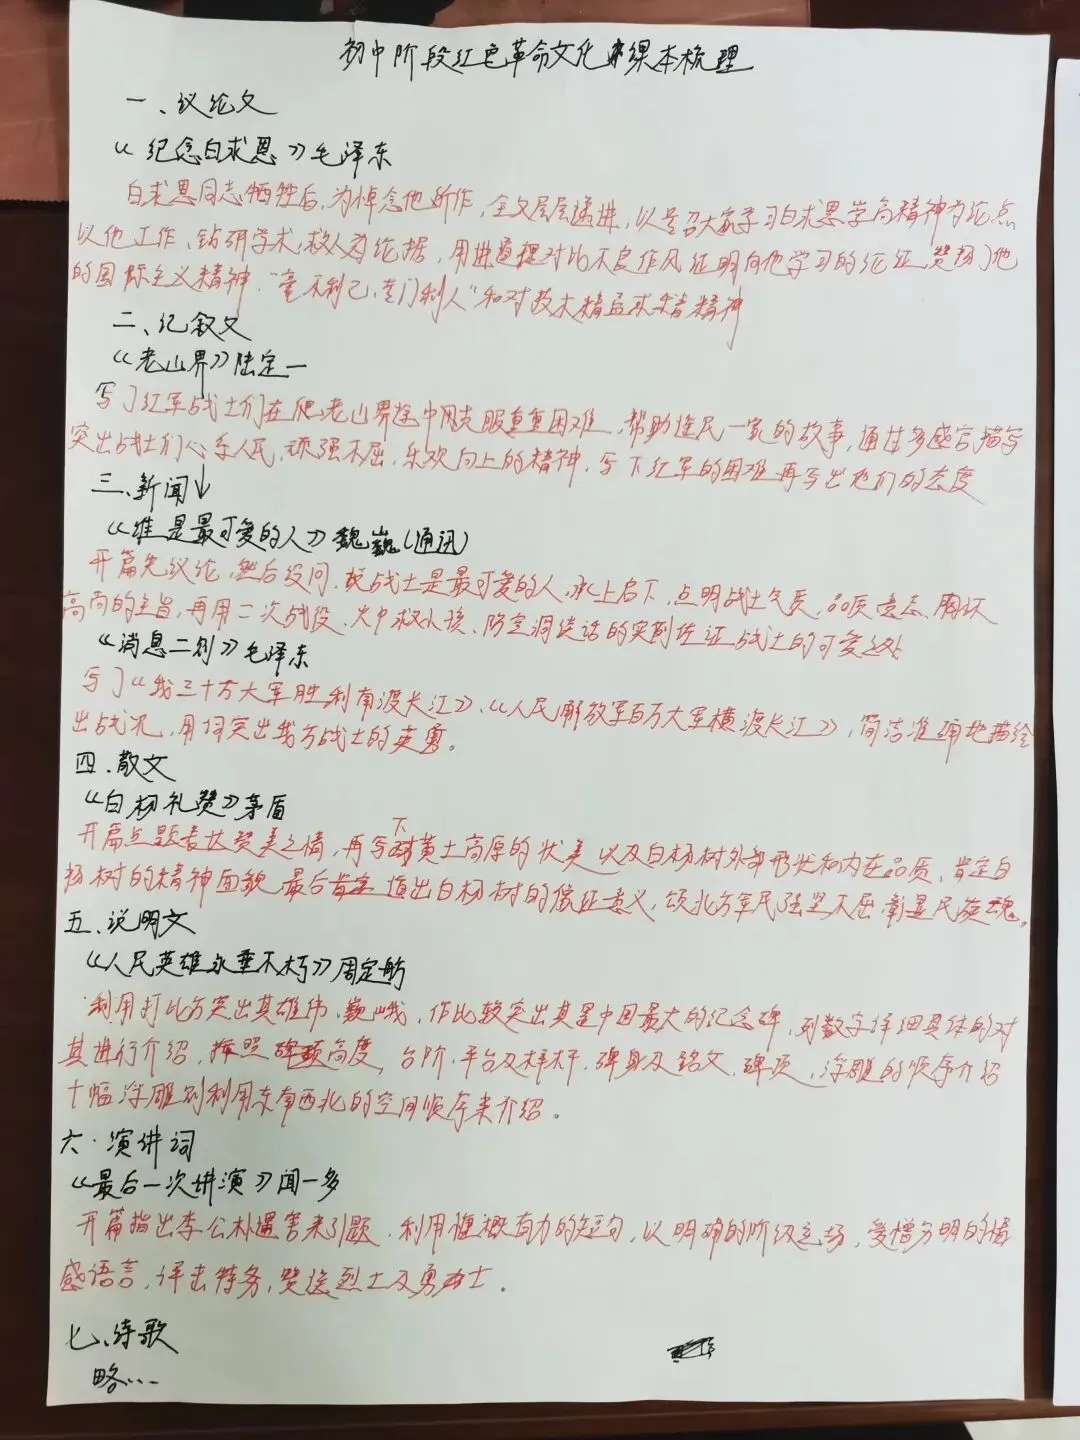 初中阶段红色革命文化课本梳理
一、议论文
《纪念白求恩》毛泽东
白求恩同志牺牲后,为悼念他所作,全文层层递进,以号召大家学习白求恩学高精神为论点
以他工作、钻研学术,救人为论据,用进道理对比不良作风证明向他学习的论证,赞扬了他
的国际主义精神,“毫不利己、专门利人”和对技术精益求精精神
二、纪叙文
《老山界》陆定一
写了红军战士们在爬老山界途中克服重重困难,帮助瑶民一家的故事,通过多感官描写
突出战士们心系人民,顽强不屈,乐观向上的精神,写下红军的困难再写出他们的态度
三、新闻↓
《谁是最可爱的人》魏巍(通讯)
开篇先议论,然后设问,战士是最可爱的人,承上启下,点明战士气质,品质,胸怀
高尚的主旨,再用二次战役、火中救小孩、防空洞谈话的实例佐证战士的可爱之处
《消息二则》毛泽东
写了《我三十万大军胜利南渡长江》、《人民解放军百万大军横渡长江》,简洁准确地描绘
出战况,用词突出我方战士的英勇。
四、散文
《白杨礼赞》茅盾
开篇点题表达赞美之情,再写下黄土高原的状美以及白杨树外部形状和内在品质,肯定白
杨树的精神面貌 最后道出白杨树的象征意义,颂北方军民强坚不屈,彰显民族魂。
五、说明文
《人民英雄永垂不朽》周定舫
利用打比方突出其雄伟、巍峨,作比较突出其是中国最大的纪念碑,列数字详细具体的对
其进行介绍,按照高度,台阶,平台及栏杆,碑身及铭文,碑顶,浮雕的顺序介绍
十幅浮雕则利用东南西北的空间顺序来介绍。
六·演讲词
《最后一次讲演》闻一多
开篇指出李公朴遇害来引题,利用慷慨有力的短句,以明确的阶级立场,爱憎分明的情
感语言,抨击特务,赞扬烈士及勇士。
七、诗歌
略……